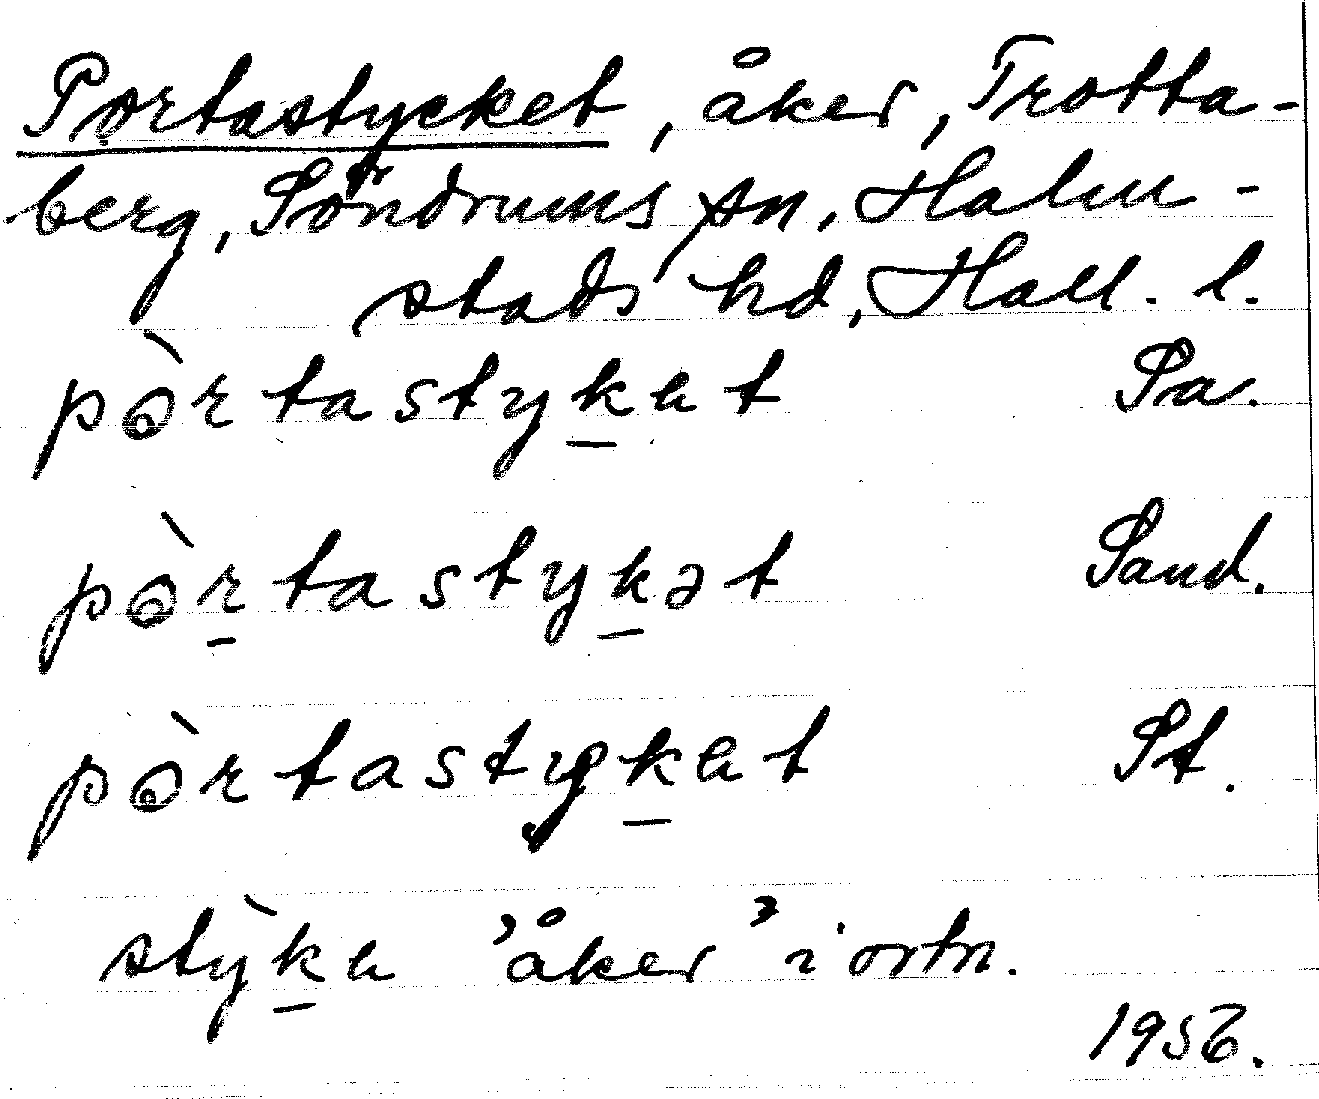 Portastycket, åker, Trotta-
berg, Söndrums sn, Halm-
stads hd, Hall. l.
pòrtastyket Sa.
pòrtastykət Sand.
pòrtastyket St.
stỳke 'åker' i ortn.
1956.